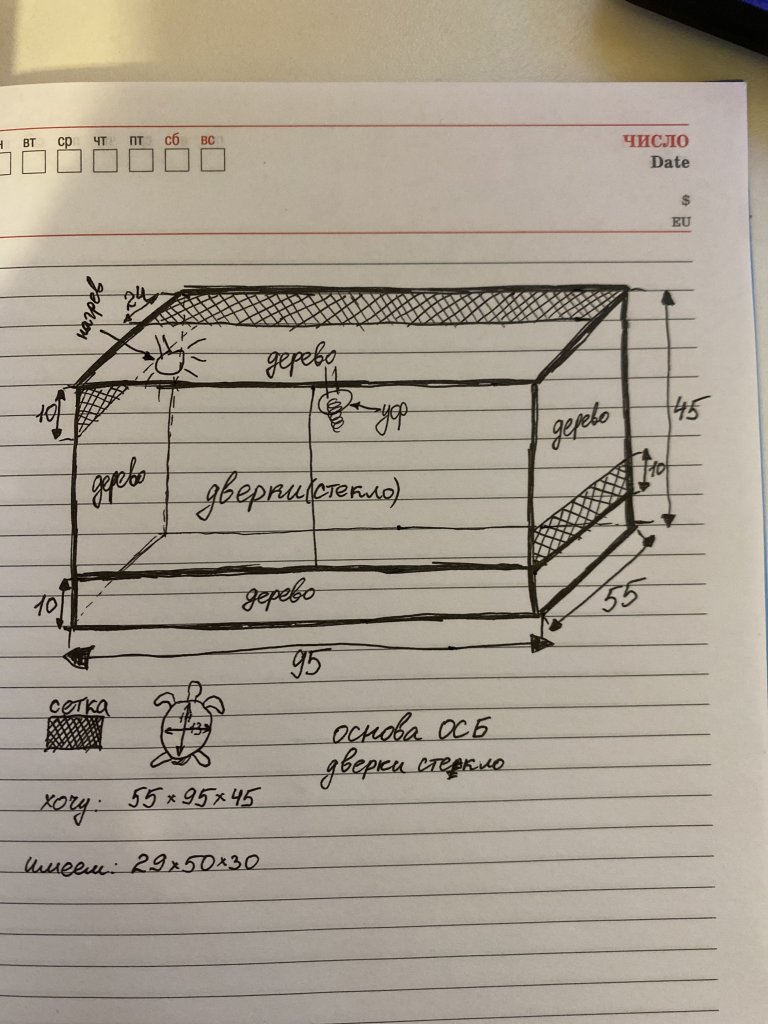 вт ср чт пт сб вс
ЧИСЛО
Date
$
EU
нагрев
24
дерево
10
уор
дерево
45
дерево
дверки(стекло)
10
10
дерево
55
95
сетка
13
основа ОСБ
дверки стекло
хочу: 55×95×45
имеем: 29×50×30